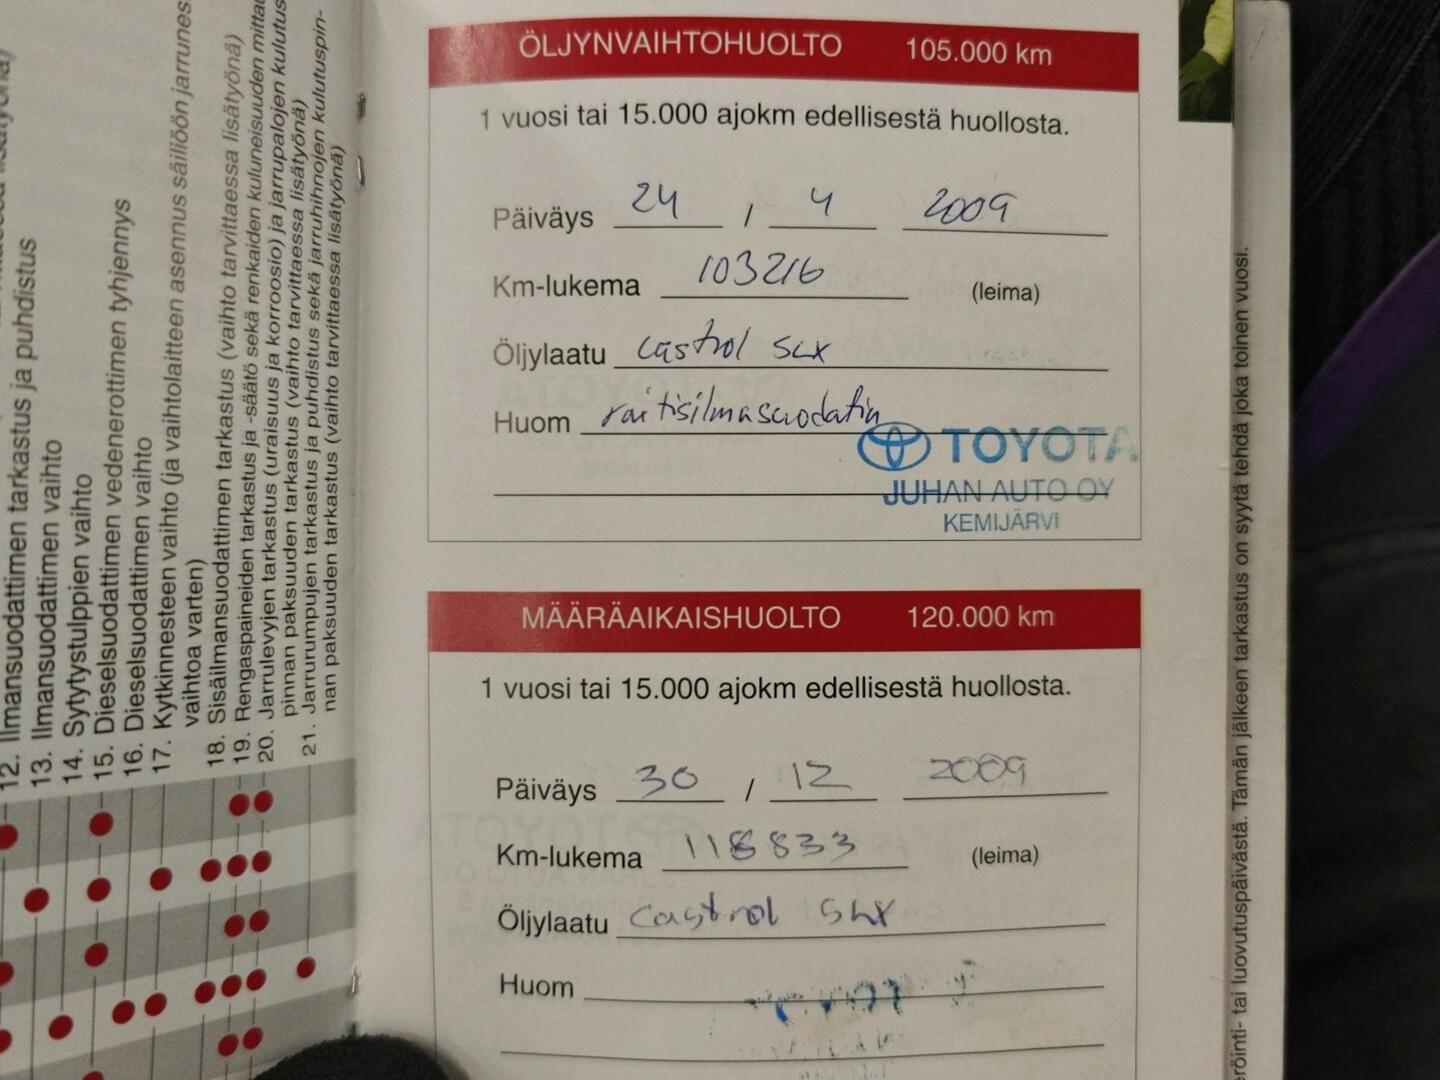 12. Ilmansuodattimen tarkastus ja puhdistus
13. Ilmansuodattimen vaihto
14. Sytytystulppien vaihto
15. Dieselsuodattimen vedenerottimen tyhjennys
16. Dieselsuodattimen vaihto
17. Kytkinnesteen vaihto (ja vaihtolaitteen asennus säiliöön jarrunes
vaihtoa varten)
18. Sisäilmansuodattimen tarkastus (vaihto tarvittaessa lisätyönä)
19. Rengaspaineiden tarkastus ja -säätö sekä renkaiden kuluneisuuden mittau
20. Jarrulevyjen tarkastus (uraisuus ja korroosio) ja jarrupalojen kulutus
pinnan paksuuden tarkastus (vaihto tarvittaessa lisätyönä)
21. Jarrurumpujen tarkastus ja puhdistus sekä jarruhihnojen kulutuspin-
nan paksuuden tarkastus (vaihto tarvittaessa lisätyönä)
ÖLJYNVAIHTOHUOLTO 105.000 km
1 vuosi tai 15.000 ajokm edellisestä huollosta.
Päiväys 24 / 4 2009
Km-lukema 103216 (leima)
Öljylaatu Castrol SLX
Huom raitisilmasuodatin
TOYOTA
JUHAN AUTO OY
KEMIJÄRVI
MÄÄRÄAIKAISHUOLTO 120.000 km
1 vuosi tai 15.000 ajokm edellisestä huollosta.
Päiväys 30 / 12 2009
Km-lukema 118833 (leima)
Öljylaatu Castrol SLX
Huom
eröinti- tai luovutuspäivästä. Tämän jälkeen tarkastus on syytä tehdä joka toinen vuosi.